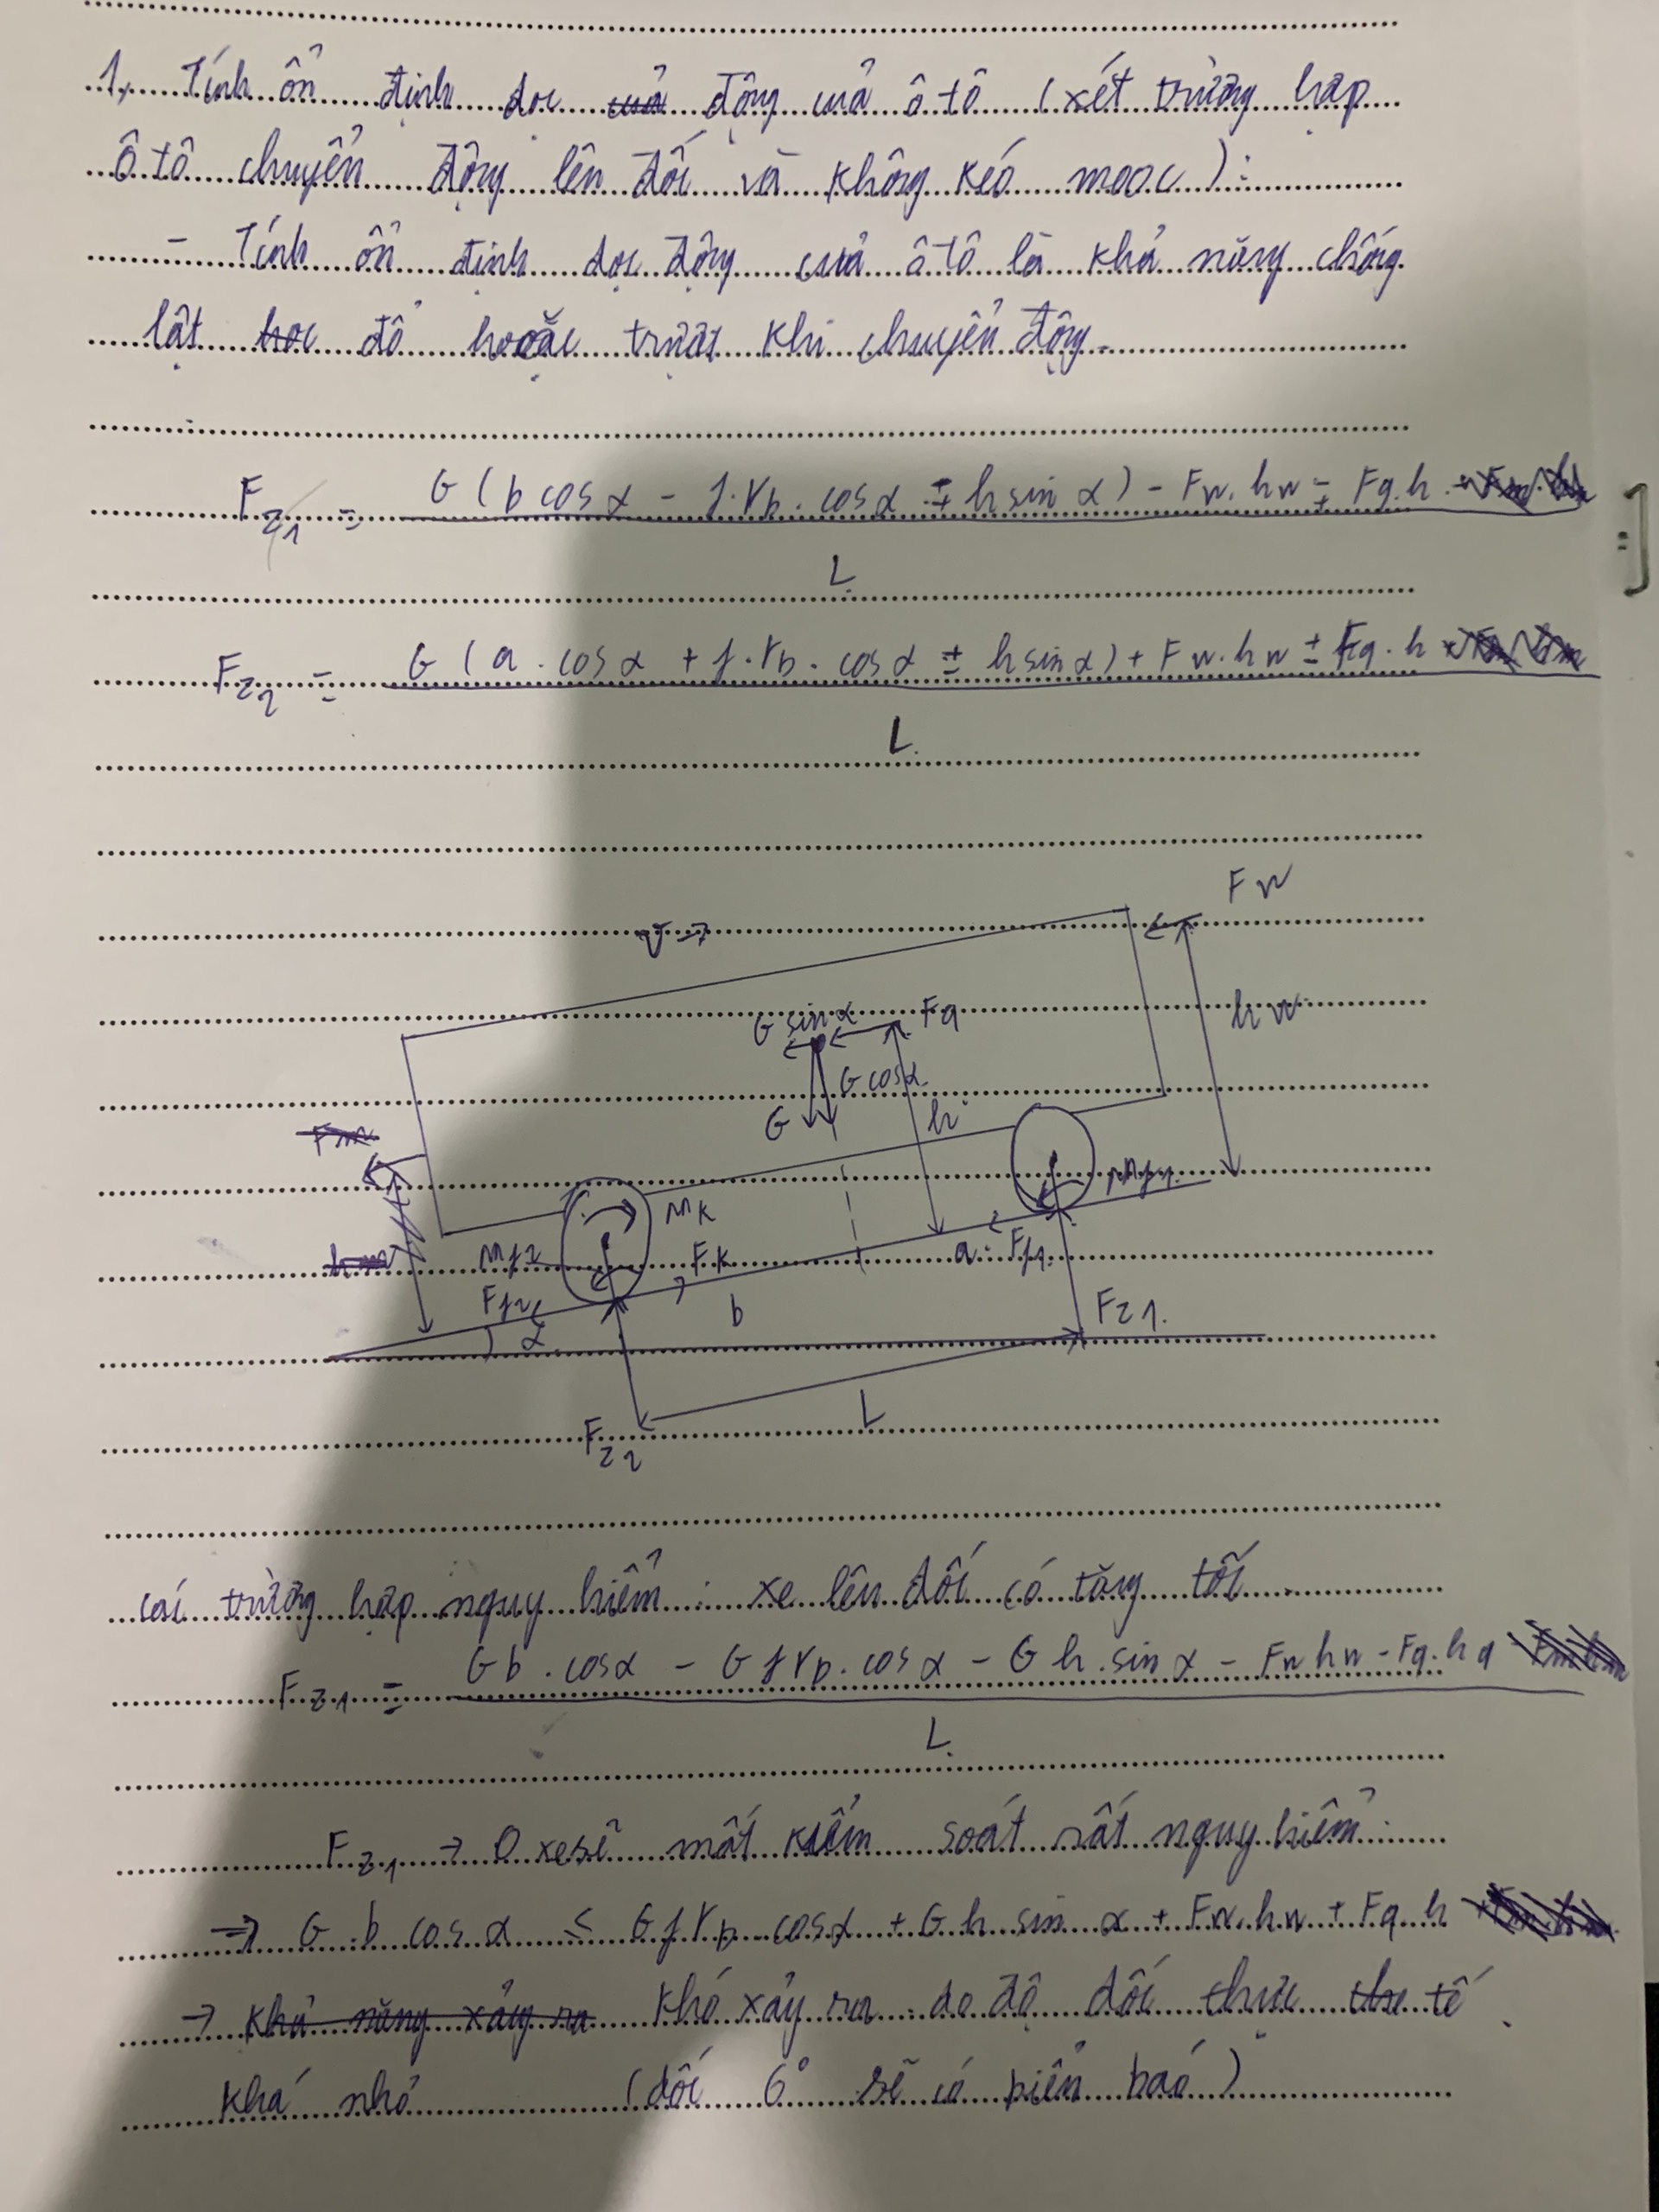 1, Tính ổn định dọc động của ô tô (xét trường hợp
Ô tô chuyển động lên dốc và không kéo mooc):
- Tính ổn định dọc động của ô tô là khả năng chống
lật đổ hoặc trượt khi chuyển động.
F_{Z1} = G(b cosα - f.r_b.cosα ∓ h sinα) - Fw.hw ∓ Fq.h
L
F_{Z2} = G(a.cosα + f.r_b.cosα ± h sinα) + Fw.hw ± Fq.h
L
Fw
v→
hw
G sinα Fq
G cosα
G h
Mk Mf1
Mf2 Fk a Ff1
Ff2 b Fz1
α
L
F_{Z2}
các trường hợp nguy hiểm: xe lên dốc có tăng tốc
F_{Z1} = Gb.cosα - G f r_b.cosα - G h.sinα - Fw hw - Fq.hq
L
F_{Z1} → 0 xe sẽ mất kiểm soát rất nguy hiểm:
⇒ G b cosα ≤ G f r_b cosα + G h sinα + Fw.hw + Fq.h
→ khó xảy ra do độ dốc thực tế
khá nhỏ (dốc 6° sẽ có biển báo)